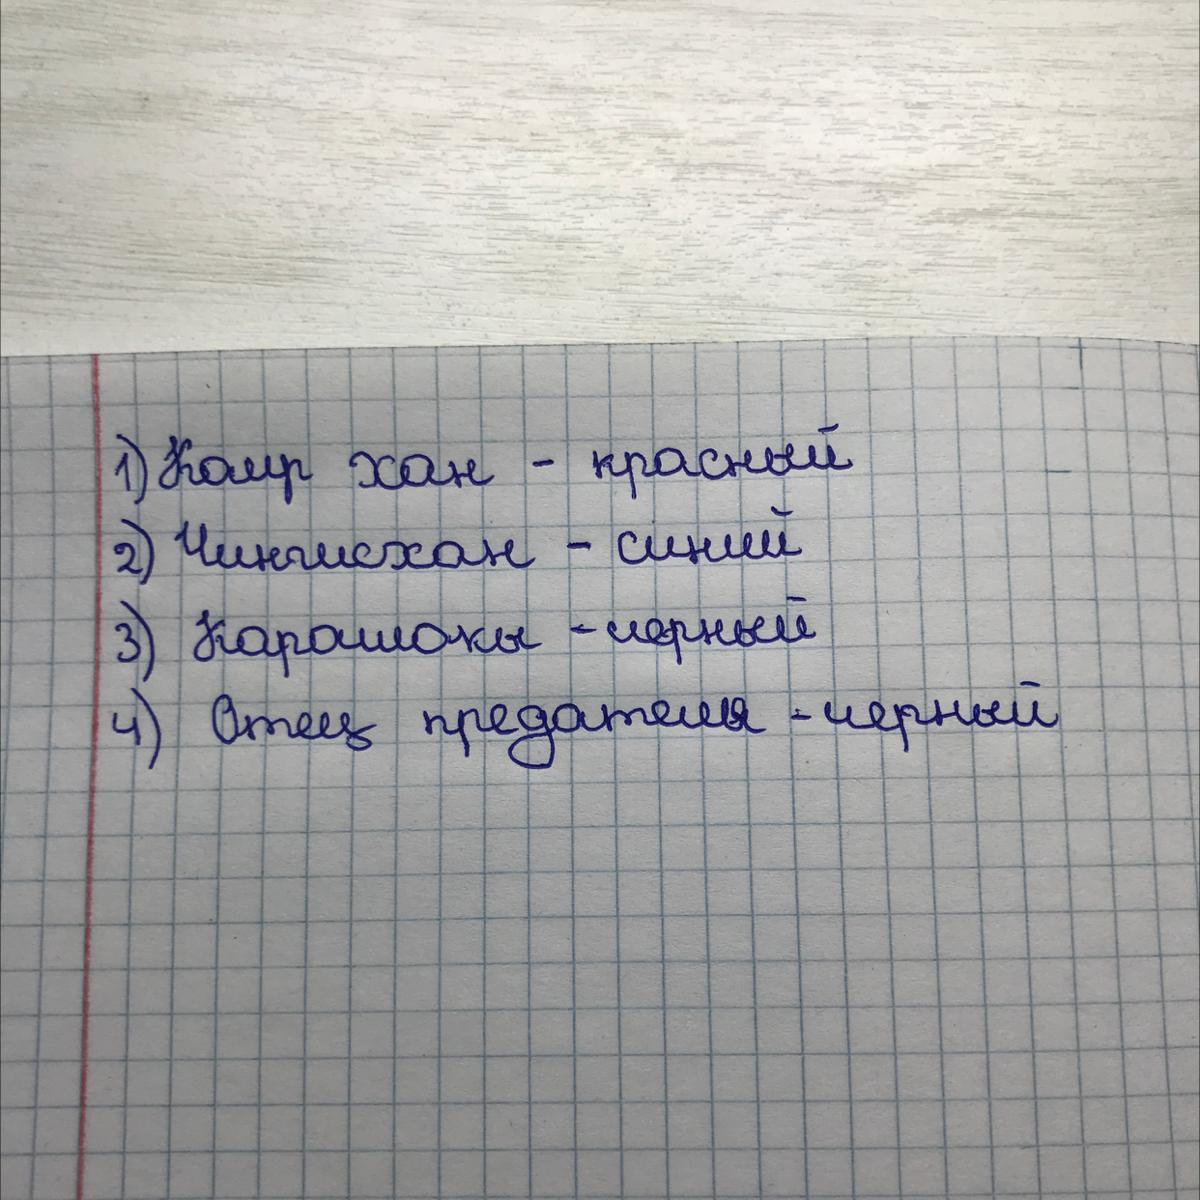 1) Каир хан - красный
2) Чингисхан - синий
3) Карашокы - черный
4) Отец предателя - черный